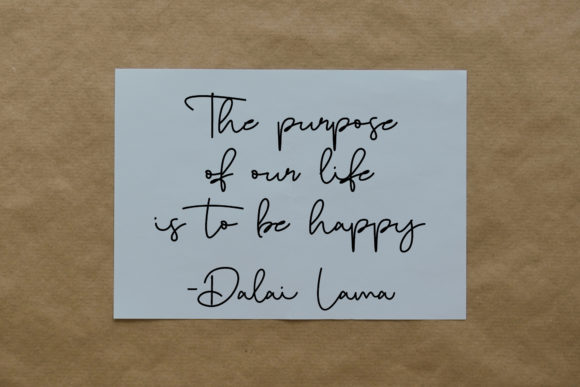 The purpose
of our life
is to be happy
-Dalai Lama